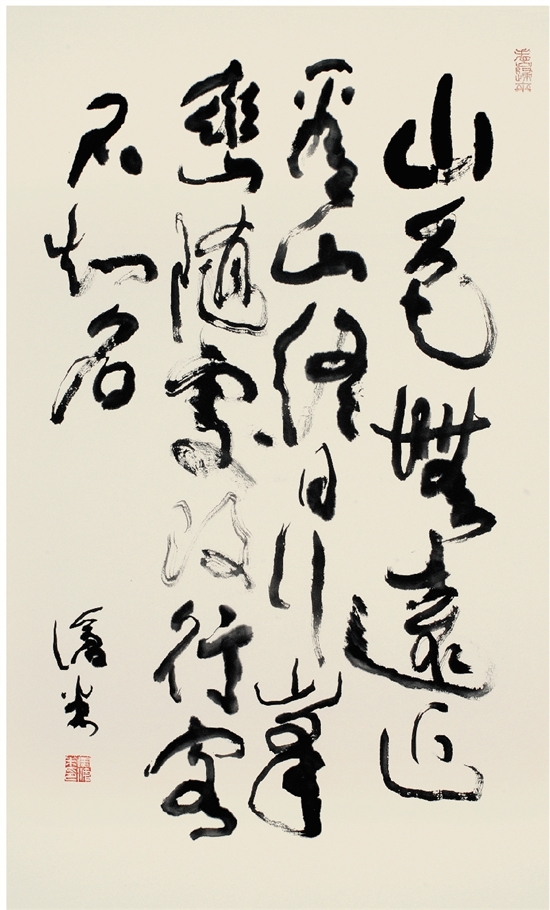 山色無遠近
看山終日行峯
巒隨處改行客
不知名
滄米